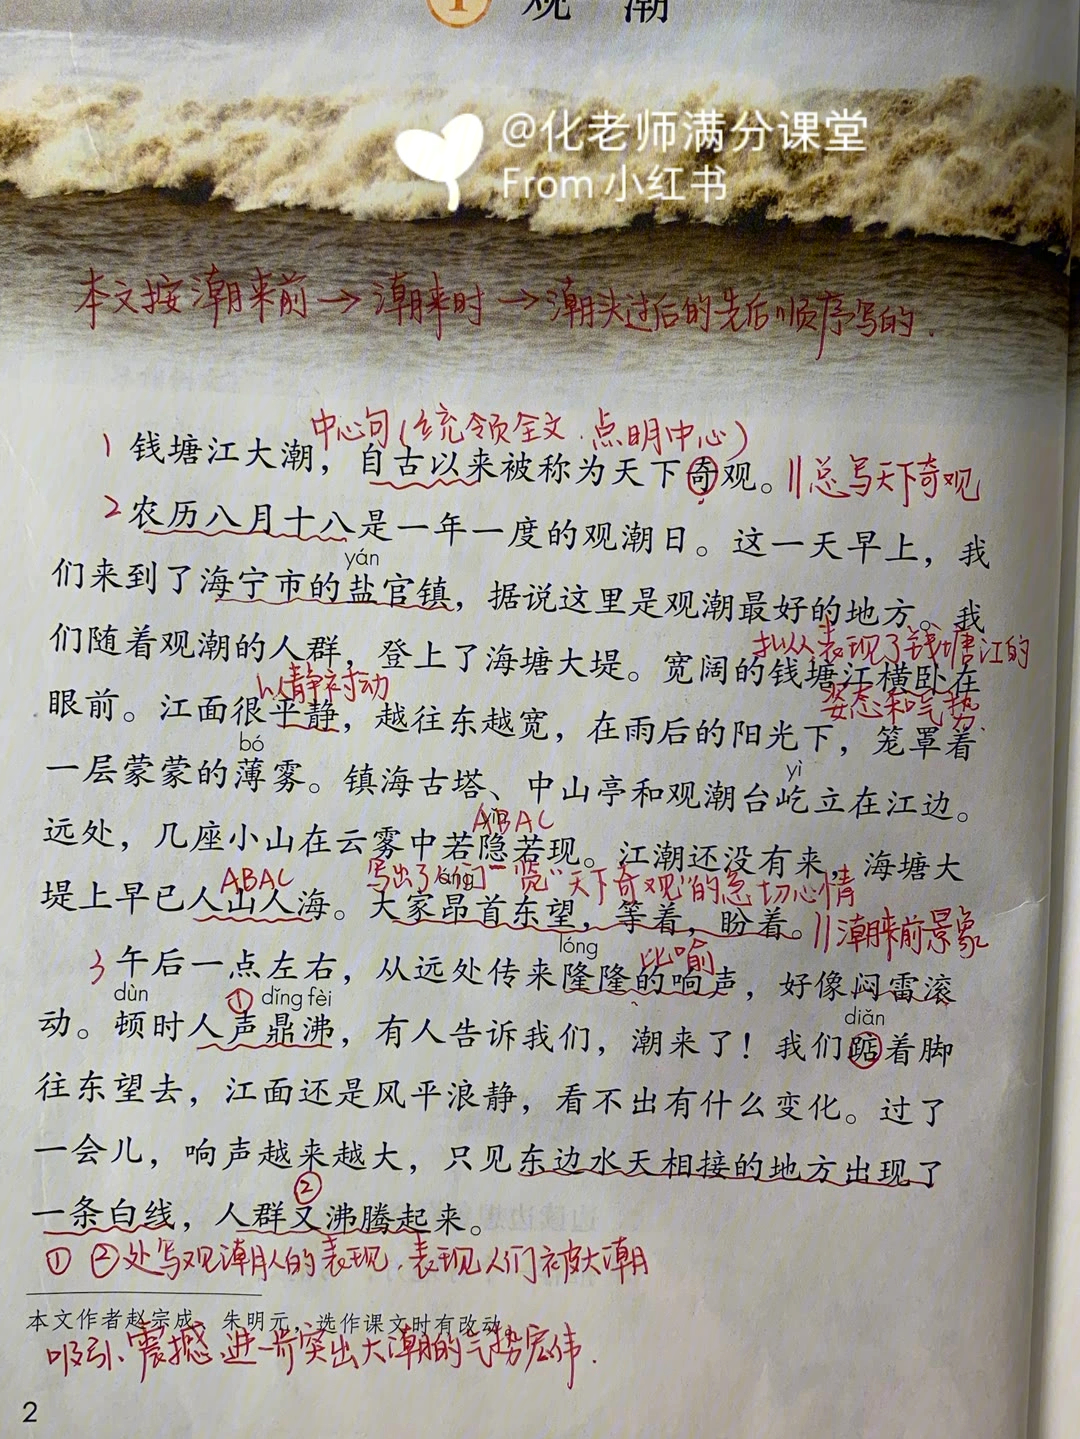 1 观 潮
@化老师满分课堂
From 小红书
本文按潮来前→潮来时→潮头过后的先后顺序写的.
中心句(统领全文.点明中心)
1 钱塘江大潮，自古以来被称为天下奇观。||总写天下奇观
2 农历八月十八是一年一度的观潮日。这一天早上，我
yán
们来到了海宁市的盐官镇，据说这里是观潮最好的地方。我
们随着观潮的人群，登上了海塘大堤。宽阔的钱塘江横卧在
拟人表现了钱塘江的
姿态和气势.
以静衬动
眼前。江面很平静，越往东越宽，在雨后的阳光下，笼罩着
bó
一层蒙蒙的薄雾。镇海古塔、中山亭和观潮台屹立在江边。
yì
ABAC
远处，几座小山在云雾中若隐若现。江潮还没有来，海塘大
ABAC
写出了人们“览“天下奇观”的急切心情
堤上早已人山人海。大家昂首东望，等着，盼着。||潮来前景象
lóng
比喻
3 午后一点左右，从远处传来隆隆的响声，好像闷雷滚
dùn ① dǐng fèi
diǎn
动。顿时人声鼎沸，有人告诉我们，潮来了！我们踮着脚
往东望去，江面还是风平浪静，看不出有什么变化。过了
一会儿，响声越来越大，只见东边水天相接的地方出现了
②
一条白线，人群又沸腾起来。
① ②处写观潮人的表现.表现人们被大潮
本文作者赵宗成、朱明元，选作课文时有改动。
吸引、震撼.进一步突出大潮的气势宏伟.
2